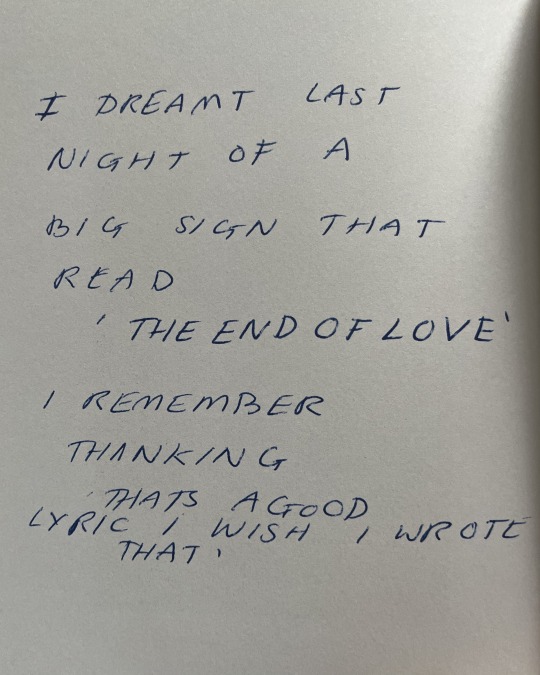 I DREAMT LAST
NIGHT OF A
BIG SIGN THAT
READ
'THE END OF LOVE'
I REMEMBER
THINKING
'THATS A GOOD
LYRIC I WISH I WROTE
THAT'